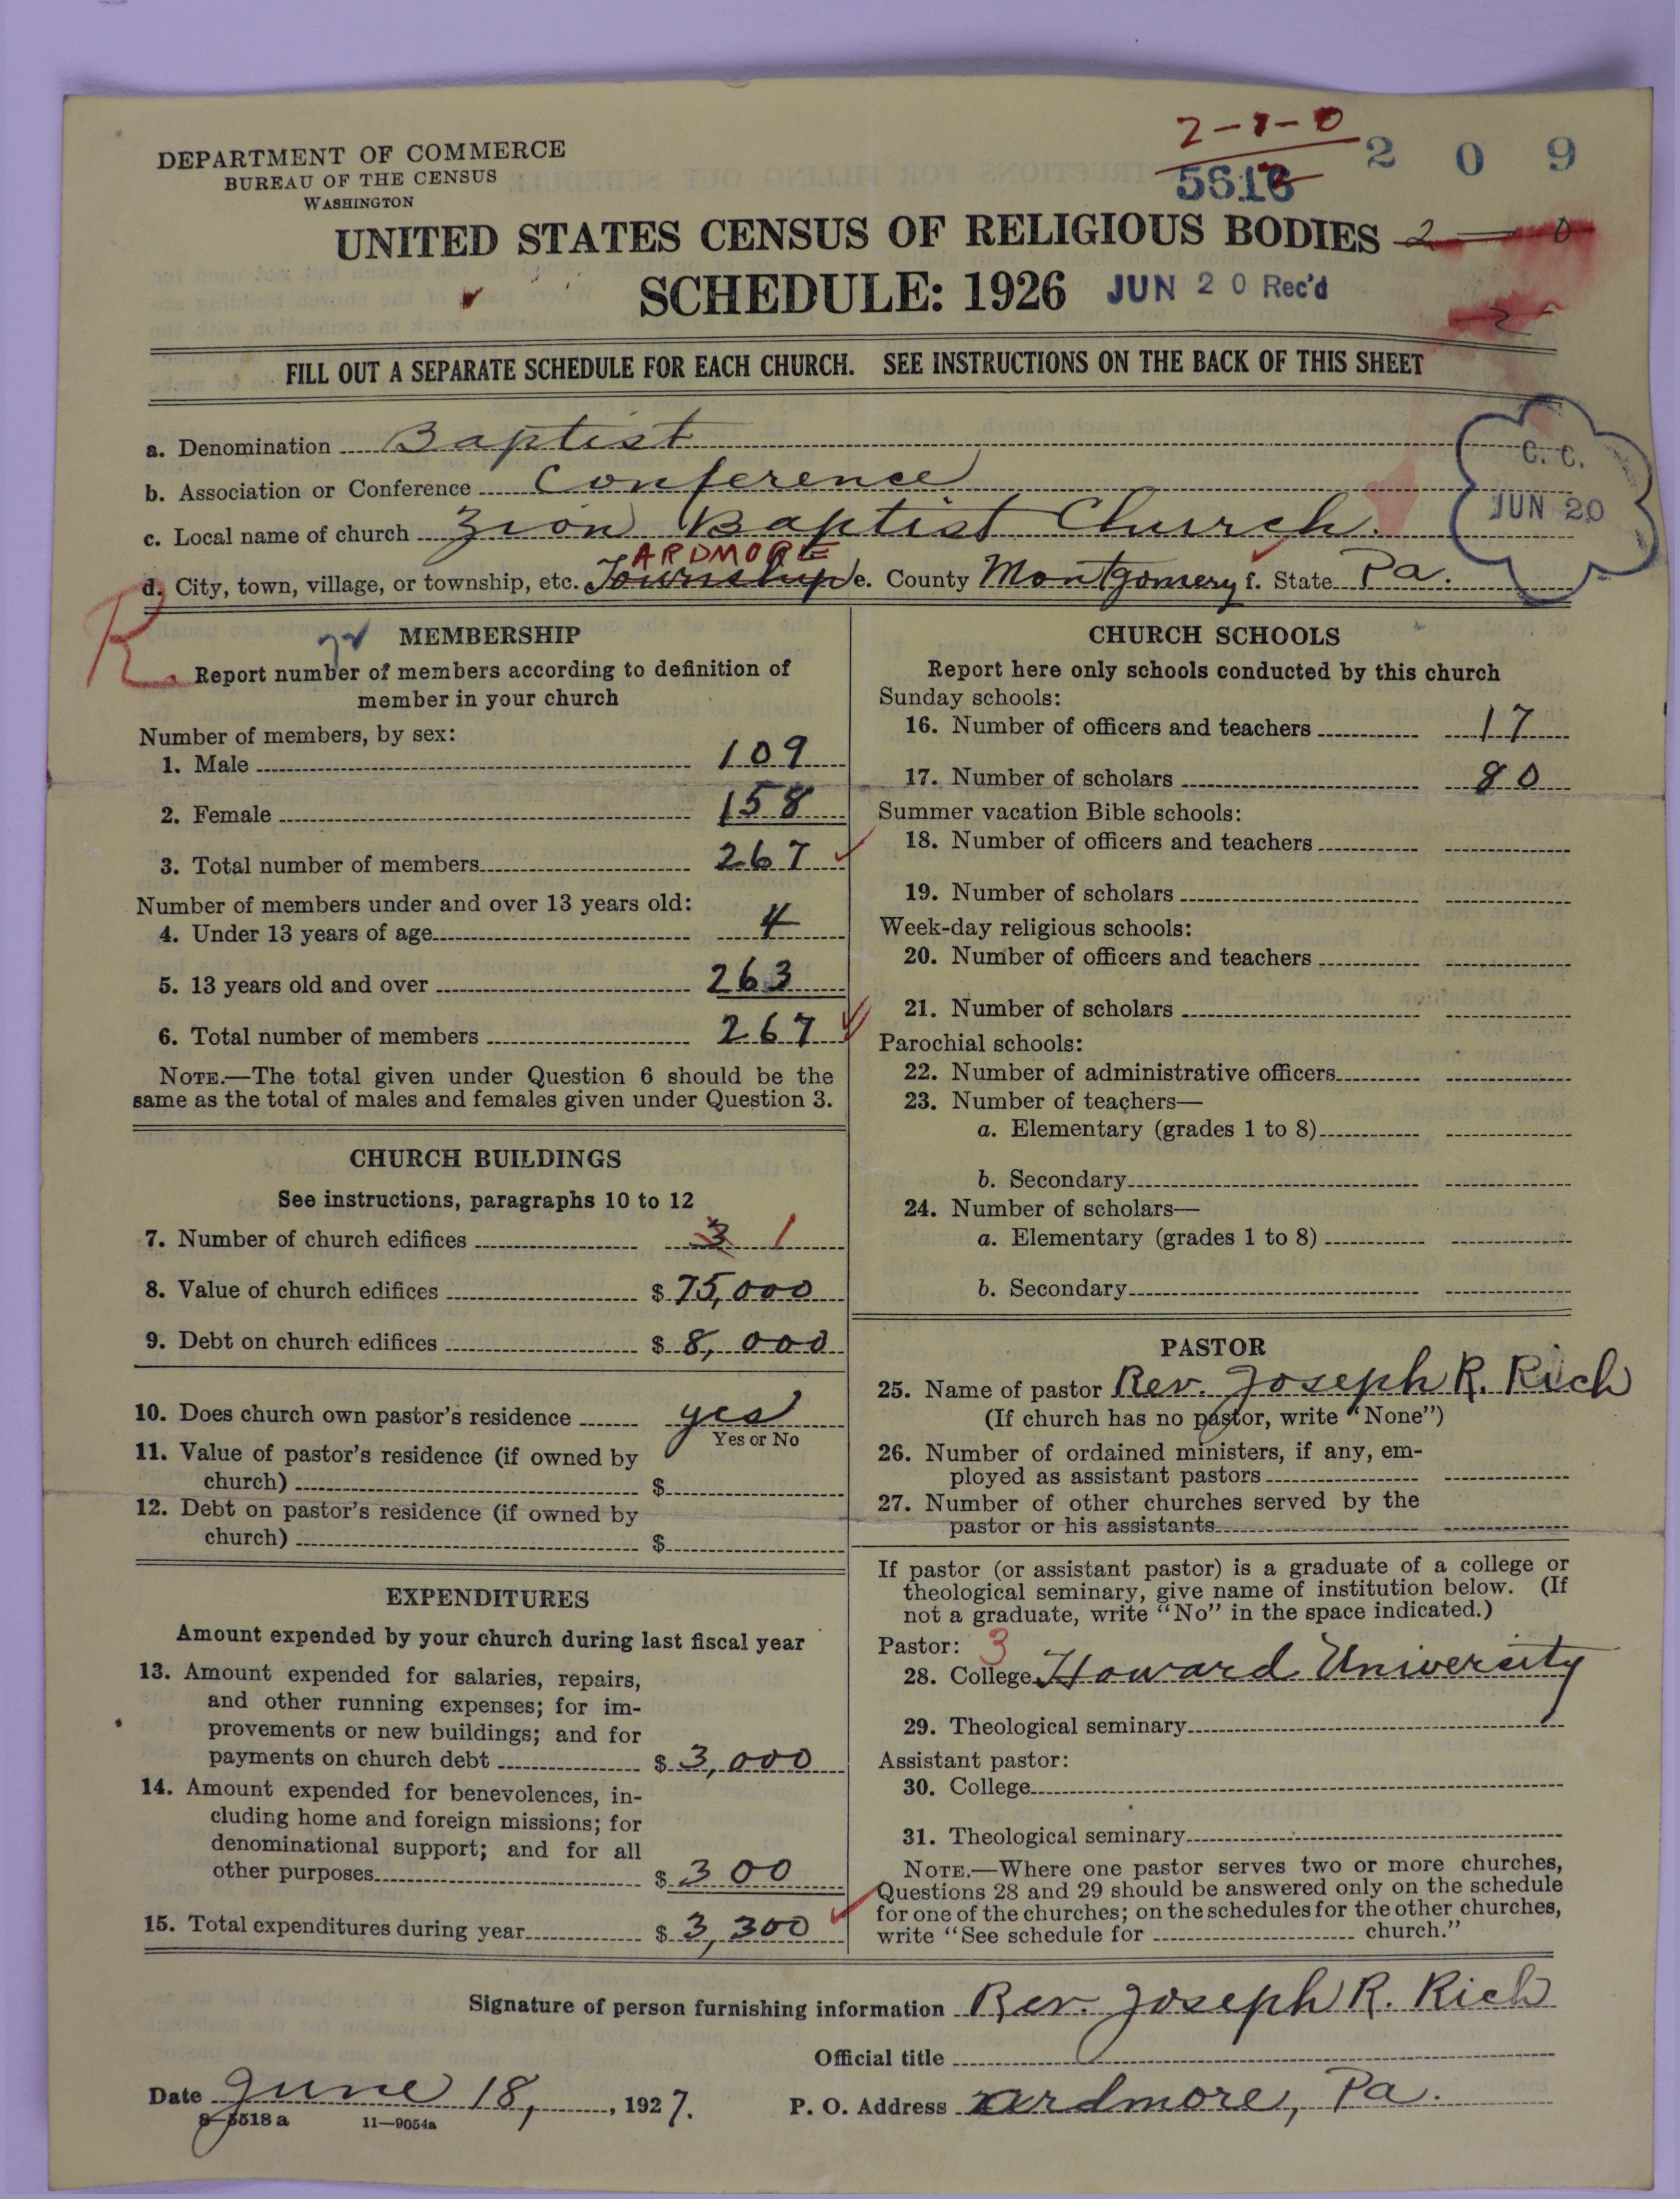 2-1-0
DEPARTMENT OF COMMERCE
BUREAU OF THE CENSUS
WASHINGTON
2 0 9
UNITED STATES CENSUS OF RELIGIOUS BODIES 2 — 0
SCHEDULE: 1926 JUN 20 Rec'd
2
FILL OUT A SEPARATE SCHEDULE FOR EACH CHURCH. SEE INSTRUCTIONS ON THE BACK OF THIS SHEET
a. Denomination Baptist
b. Association or Conference Conference
c. Local name of church Zion Baptist Church.
C. C.
JUN 20
ARDMORE
d. City, town, village, or township, etc. Township e. County Montgomery f. State Pa.
R
MEMBERSHIP
Report number of members according to definition of
member in your church
Number of members, by sex:
1. Male 109
2. Female 158
3. Total number of members 267
Number of members under and over 13 years old:
4. Under 13 years of age 4
5. 13 years old and over 263
6. Total number of members 267
NOTE.—The total given under Question 6 should be the
same as the total of males and females given under Question 3.
CHURCH BUILDINGS
See instructions, paragraphs 10 to 12
7. Number of church edifices 3 1
8. Value of church edifices $ 75,000
9. Debt on church edifices $ 8,000
10. Does church own pastor's residence yes
Yes or No
11. Value of pastor's residence (if owned by
church) $
12. Debt on pastor's residence (if owned by
church) $
EXPENDITURES
Amount expended by your church during last fiscal year
13. Amount expended for salaries, repairs,
and other running expenses; for im-
provements or new buildings; and for
payments on church debt $ 3,000
14. Amount expended for benevolences, in-
cluding home and foreign missions; for
denominational support; and for all
other purposes $ 300
15. Total expenditures during year $ 3,300
CHURCH SCHOOLS
Report here only schools conducted by this church
Sunday schools:
16. Number of officers and teachers 17
17. Number of scholars 80
Summer vacation Bible schools:
18. Number of officers and teachers
19. Number of scholars
Week-day religious schools:
20. Number of officers and teachers
21. Number of scholars
Parochial schools:
22. Number of administrative officers
23. Number of teachers—
a. Elementary (grades 1 to 8)
b. Secondary
24. Number of scholars—
a. Elementary (grades 1 to 8)
b. Secondary
PASTOR
25. Name of pastor Rev. Joseph R. Rich
(If church has no pastor, write "None")
26. Number of ordained ministers, if any, em-
ployed as assistant pastors
27. Number of other churches served by the
pastor or his assistants
If pastor (or assistant pastor) is a graduate of a college or
theological seminary, give name of institution below. (If
not a graduate, write "No" in the space indicated.)
Pastor: 3
28. College Howard University
29. Theological seminary
Assistant pastor:
30. College
31. Theological seminary
NOTE.—Where one pastor serves two or more churches,
Questions 28 and 29 should be answered only on the schedule
for one of the churches; on the schedules for the other churches,
write "See schedule for church."
Signature of person furnishing information Rev. Joseph R. Rich
Official title
Date June 18, 1927. P. O. Address Ardmore, Pa.
8-5518 a 11—9054a